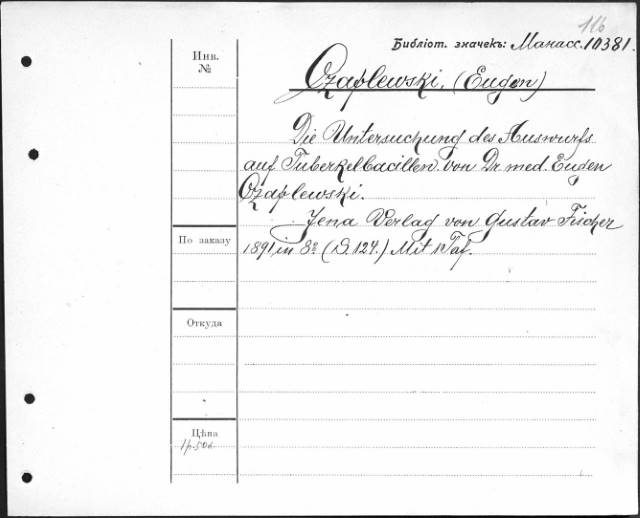 116
Библіот. значекъ: Манасс. 10381.
Инв.
№
Czaplewski, (Eugen)
Die Untersuchung des Auswurfs
auf Tuberkelbacillen von Dr. med. Eugen
Czaplewski.
Jena Verlag von Gustav Fischer
По заказу
1891, in 8º (S. 124.) Mit 1 Taf.
Откуда
Цѣна